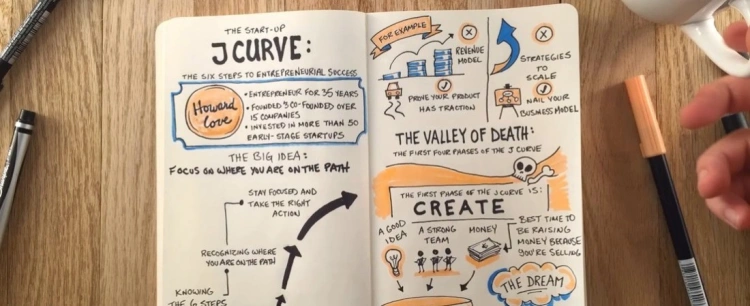 THE START-UP
J CURVE:
THE SIX STEPS TO ENTREPRENEURIAL SUCCESS
Howard
Love
• ENTREPRENEUR FOR 35 YEARS
• FOUNDED & CO-FOUNDED OVER
15 COMPANIES
• INVESTED IN MORE THAN 50
EARLY-STAGE STARTUPS
THE BIG IDEA:
FOCUS ON WHERE YOU ARE ON THE PATH
STAY FOCUSED AND
TAKE THE RIGHT
ACTION
RECOGNIZING WHERE
YOU ARE ON THE PATH
KNOWING
THE 6 STEPS
FOR EXAMPLE
REVENUE
MODEL
PROVE YOUR PRODUCT
HAS TRACTION
STRATEGIES
TO
SCALE
NAIL YOUR
BUSINESS MODEL
THE VALLEY OF DEATH:
THE FIRST FOUR PHASES OF THE J CURVE
THE FIRST PHASE OF THE J CURVE IS:
CREATE
A GOOD
IDEA
A STRONG
TEAM
MONEY
BEST TIME TO
BE RAISING
MONEY BECAUSE
YOU'RE SELLING
THE DREAM